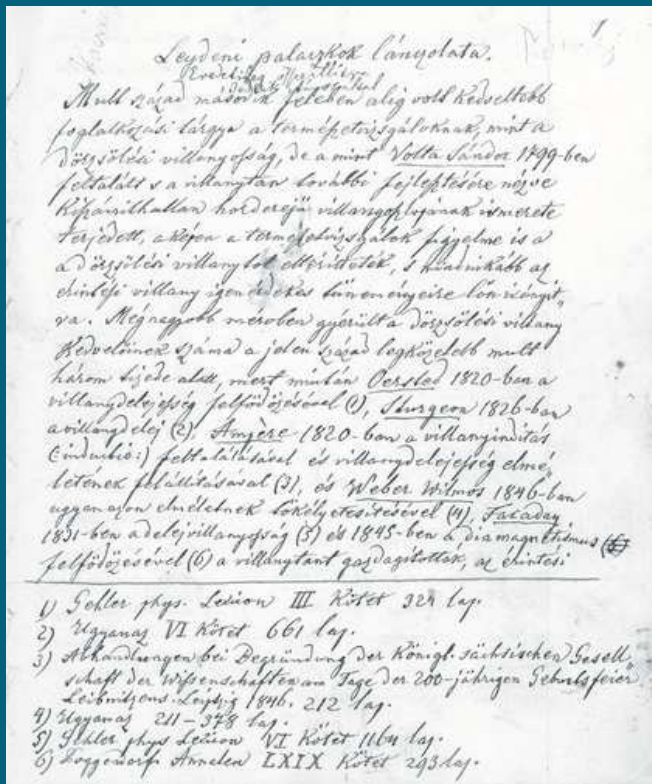 1
Leydeni palaczkok lánczolata.
Eredetileg
Mult század második felében alig volt kedveltebb
foglalkozási tárgya a természetvizsgálóknak, mint a
dörzsölési villanyosság, de a mint Volta Sándor 1799-ben
feltalált s a villanytan további fejleptésére nézve
kiszámíthatlan horderejü villanyoszlopának ismerete
terjedett, a képen a természetvizsgálók figyelme is a
a dörzsölési villanytól eltéríttetett, s inkább az
érintési villany igen érdekes tüneményeire lön irányit„
va. Mégnagyobb mérvben gyérült a dörzsölési villany
kedvelőinek száma a jelen század legközelebb mult
három tizede alatt, mert miután Oersted 1820-ban a
villanydelejesség felfödözésével (1), Sturgeon 1826-ban
a villanydelej (2), Ampère 1820-ban a villanyinditás
(:inductió:) feltalálásával és villanydelejesség elmé„
letének felállitásával (3), és Weber Vilmos 1846-ban
ugyanazon elméletnek tökélyetesitésével (4), Faraday
1831-ben a delejvillanyosság (5) és 1845-ben a diamagnetismus
felfödözésével (6) a villanytant gazdagitották, az érintési
1) Gehler phys. Lexicon III Kötet 324 lap.
2) Ugyanaz VI Kötet 661 lap.
3) Abhandlungen bei Begründung der Königl. sächsischen Gesell„
schaft der Wissenschaften am Tage der 200-jährigen Geburtsfeier
Leibnitzens. Leipzig 1846. 212 lap.
4) Ugyanaz 211-378 lap.
5) Gehler phys Lexicon VI Kötet 1164 lap.
6) Poggendorfs Annalen LXIX Kötet 293 lap.